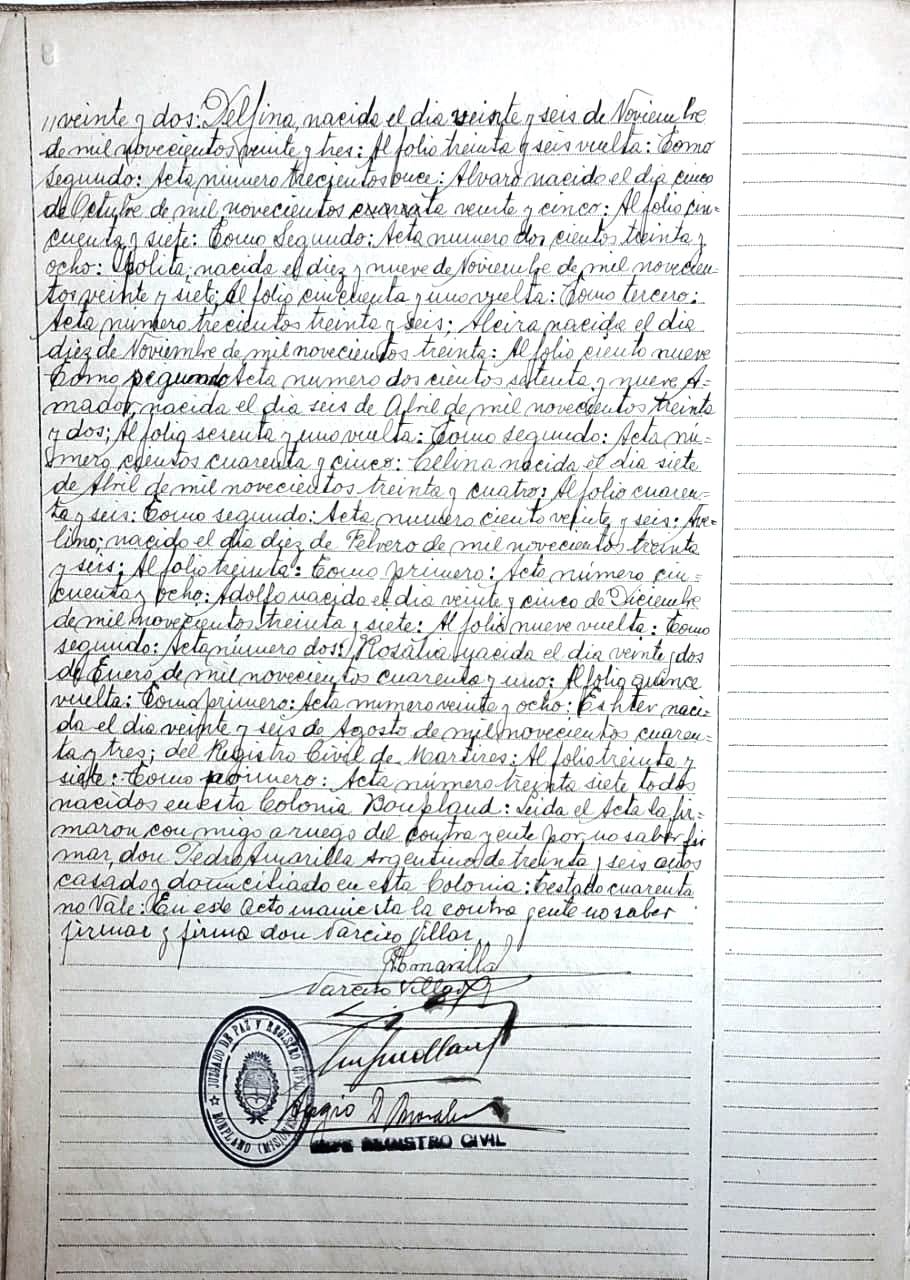 //veinte y dos: Delfina, nacida el dia veinte y seis de Noviembre
de mil novecientos veinte y tres: Al folio treinta y seis vuelta: Como
segundo: Acta numero trecientos once: Alvaro nacido el dia cinco
de Octubre de mil novecientos cuarenta veinte y cinco: Al folio cin=
cuenta y siete: Como Segundo: Acta numero dos cientos treinta y
ocho: Ipolita, nacida el diez y nueve de Noviembre de mil novecien=
tos veinte y siete; Al folio cincuenta y uno vuelta: Como tercero:
Acta número trecientos treinta y seis; Alcira nacida el dia
diez de Noviembre de mil novecientos treinta: Al folio ciento nueve
Como segundo Acta numero dos cientos setenta y nueve A=
mador, nacida el dia seis de Abril de mil novecientos treinta
y dos; Al folio sesenta y uno vuelta: Como segundo: Acta nú=
mero cientos cuarenta y cinco: Celina nacida el dia siete
de Abril de mil novecientos treinta y cuatro: Al folio cuaren=
ta y seis: Como segundo: Acta numero ciento veinte y seis: Ave=
lino; nacido el dia diez de Febrero de mil novecientos treinta
y seis: Al folio treinta: Como primero: Acta número cin=
cuenta y ocho: Adolfo nacido el dia veinte y cinco de Diciembre
de mil novecientos treinta y siete: Al folio nueve vuelta: Como
segundo: Acta número dos: Rosalia nacida el dia veinte y dos
de Enero de mil novecientos cuarenta y uno: Al folio quince
vuelta: Como primero: Acta numero veinte y ocho: Eshter naci=
da el dia veinte y seis de Agosto de mil novecientos cuaren=
ta y tres; del Registro Civil de Martires: Al folio treinta y
siete: Como primero: Acta número treinta siete todos
nacidos en esta Colonia Bonpland: Leida el Acta la fir=
maron con migo a ruego del contra yente por no saber fir
mar, don Pedro Amarilla Argentino de treinta y seis años
casado y domiciliado en esta Colonia: Testado cuarenta
no Vale: En este Acto maniesta la contra yente no saber
firmar y firma don Narciso Villar
PAmarilla
Narciso Villar
Sergio D Morales
JUZGADO DE PAZ Y REGISTRO CIVIL
BONPLAND (MISIONES)
JEFE REGISTRO CIVIL